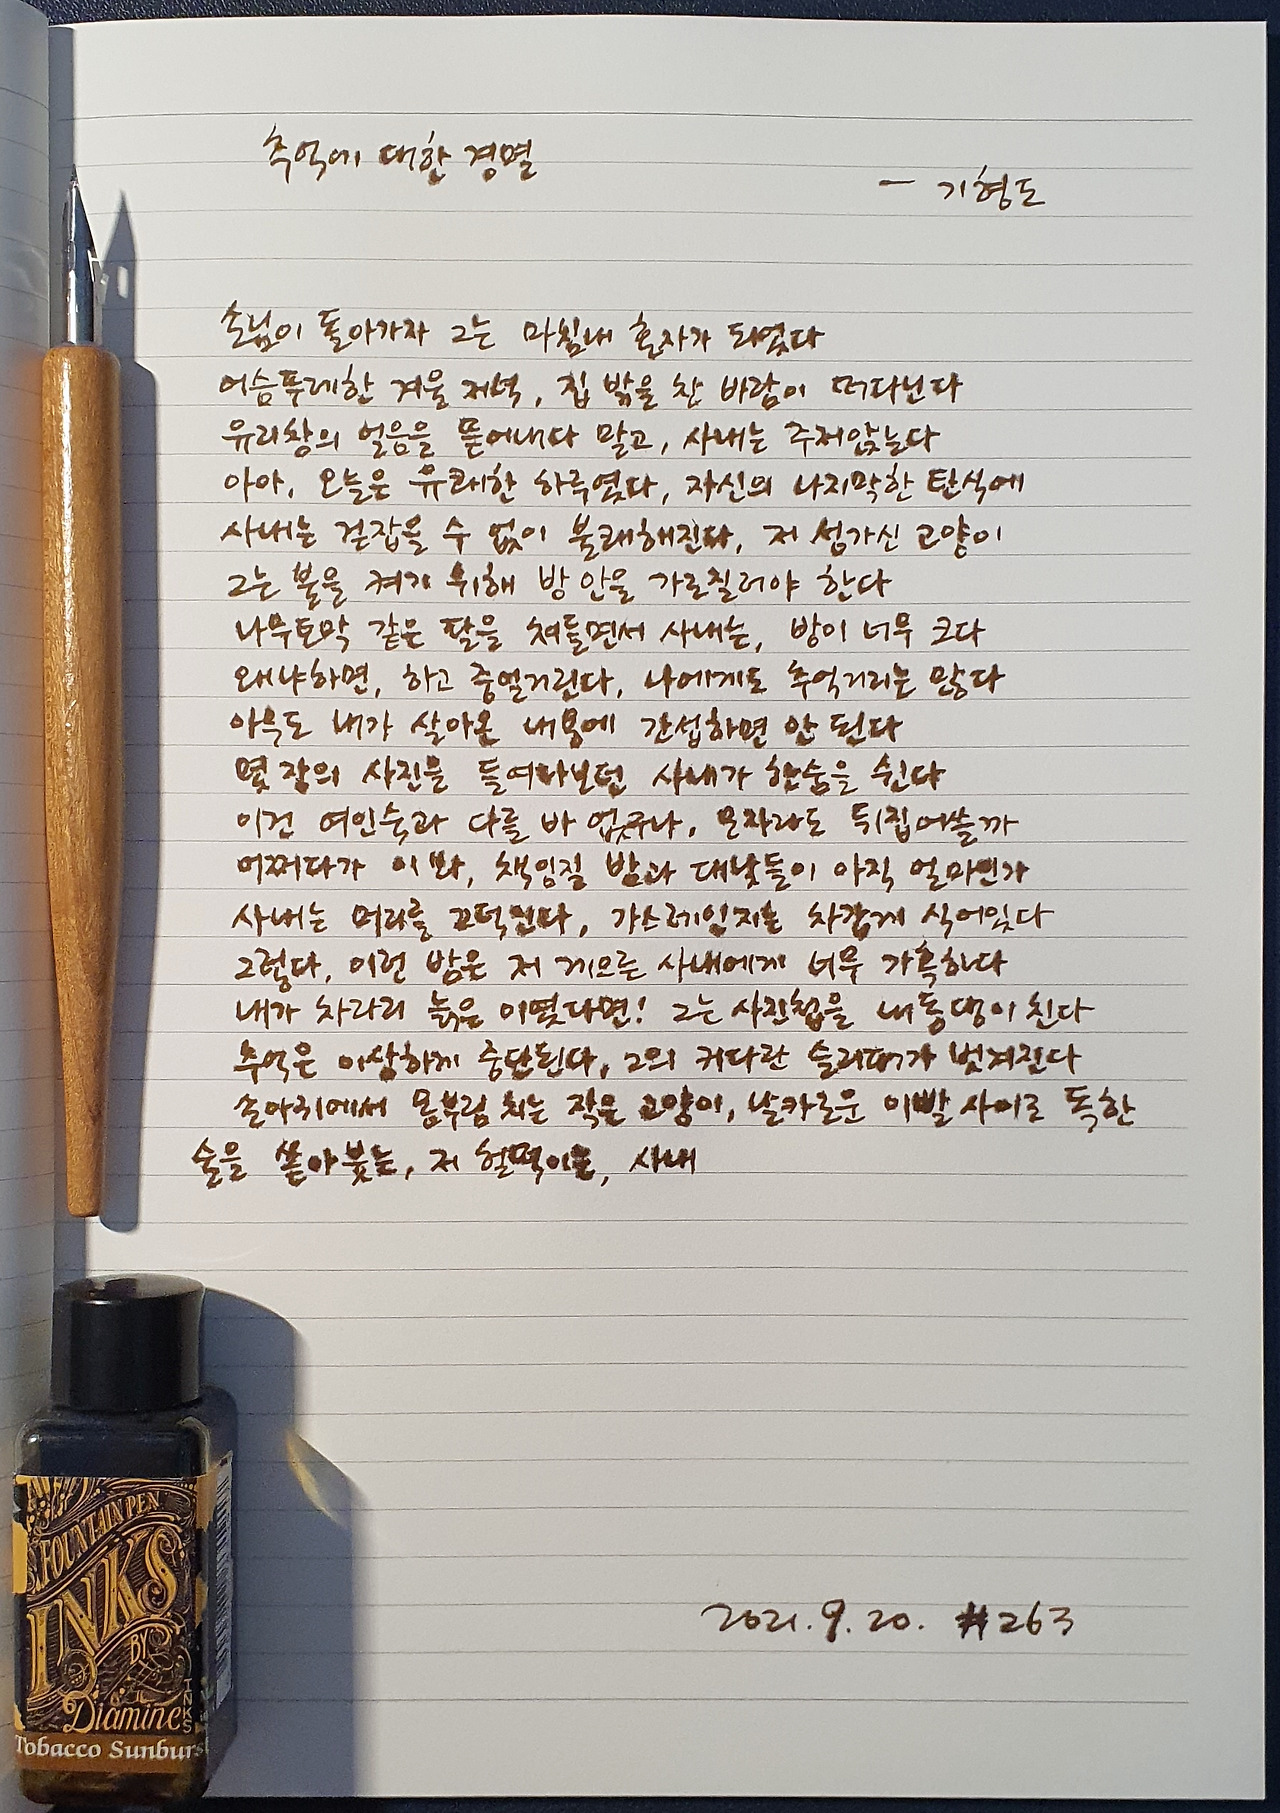 추억에 대한 경멸
- 기형도
손님이 돌아가자 그는 마침내 혼자가 되었다
어슴푸레한 겨울 저녁, 집 밖을 찬 바람이 떠다닌다
유리창의 얼음을 뜯어내다 말고, 사내는 주저앉는다
아아, 오늘은 유쾌한 하루였다, 자신의 나지막한 탄식에
사내는 걷잡을 수 없이 불쾌해진다, 저 성가신 고양이
그는 불을 켜기 위해 방 안을 가로질러야 한다
나무토막 같은 팔을 쳐들면서 사내는, 방이 너무 크다
왜냐하면, 하고 중얼거린다, 나에게도 추억거리는 많다
아무도 내가 살아온 내용에 간섭하면 안 된다
몇 장의 사진을 들여다보던 사내가 한숨을 쉰다
이건 여인숙과 다를 바 없구나, 모자라도 뒤집어쓸까
어쩌다가 이봐, 책임질 밤과 대낮들이 아직 얼마인가
사내는 머리를 끄덕인다, 가스레인지는 차갑게 식어있다
그렇다, 이런 밤은 저 게으른 사내에게 너무 가혹하다
내가 차라리 늙은이였다면! 그는 사진첩을 내동댕이친다
추억은 이상하게 중단된다, 그의 커다란 슬리퍼가 벗겨진다
손아귀에서 몸부림치는 작은 고양이, 날카로운 이빨 사이로 독한
술을 쏟아붓는, 저 헐떡이는, 사내
2021. 9. 20. #263
FOUNTAIN PEN
INKS
BY
Diamine
INKS
Tobacco Sunburs